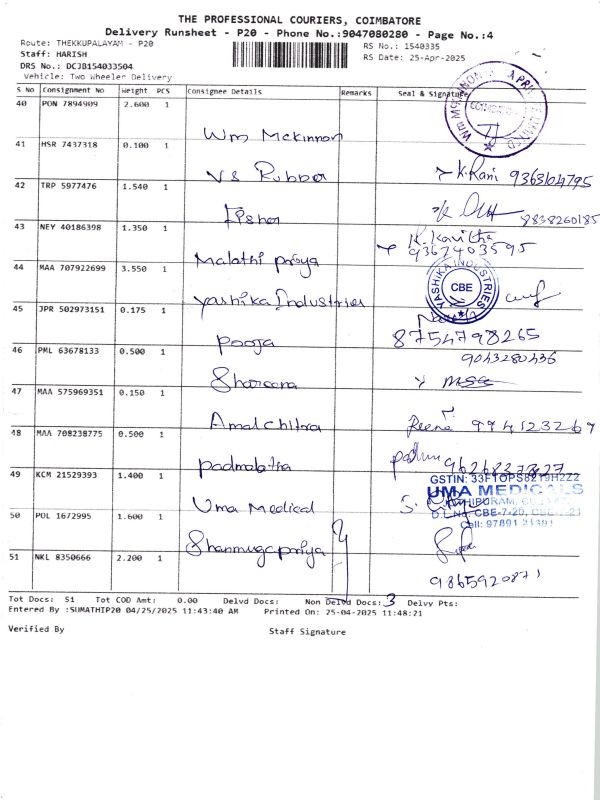 THE PROFESSIONAL COURIERS, COIMBATORE
Delivery Runsheet - P20 - Phone No.:9047080280 - Page No.:4
Route: THEKKUPALAYAM - P20
RS No.: 1540335
Staff: HARISH
RS Date: 25-Apr-2025
DRS No.: DCJB154033504
Vehicle: Two Wheeler Delivery
S No Consignment No Weight PCS Consignee Details Remarks Seal & Signature
40 PON 7894909 2.600 1 Wm Mckinnon
WM MCKINNON
41 HSR 7437318 0.100 1 VS Rubber K.Rani 9363104795
42 TRP 5977476 1.540 1 8838260185
43 NEY 40186398 1.350 1 Malathi priya K. Kavitha 9367403595
44 MAA 707922699 3.550 1 Yashika Industries
YASHIKA INDUSTRIES CBE
45 JPR 502973151 0.175 1 pooja 8754798265
46 PML 63678133 0.500 1 9043280436
47 MAA 575969351 0.150 1 Amal chitra Reena 9941223269
48 MAA 708238775 0.500 1 padmalatha
49 KCM 21529393 1.400 1 Uma Medical
UMA MEDICALS
50 POL 1672995 1.600 1 Shanmugapriya
51 NKL 8350666 2.200 1 9865920871
Tot Docs: 51 Tot COD Amt: 0.00 Delvd Docs: Non Delvd Docs: 3 Delvy Pts:
Entered By :SUMATHIP20 04/25/2025 11:43:40 AM Printed On: 25-04-2025 11:48:21
Verified By Staff Signature